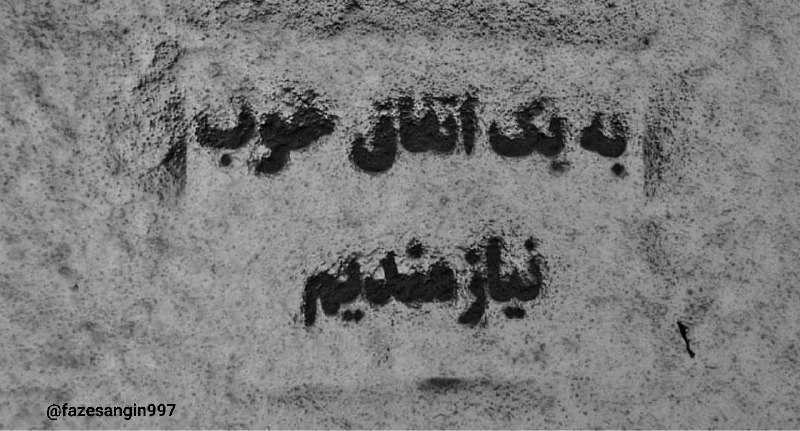 به یک اتفاق خوب
نیازمندیم
@fazesangin997